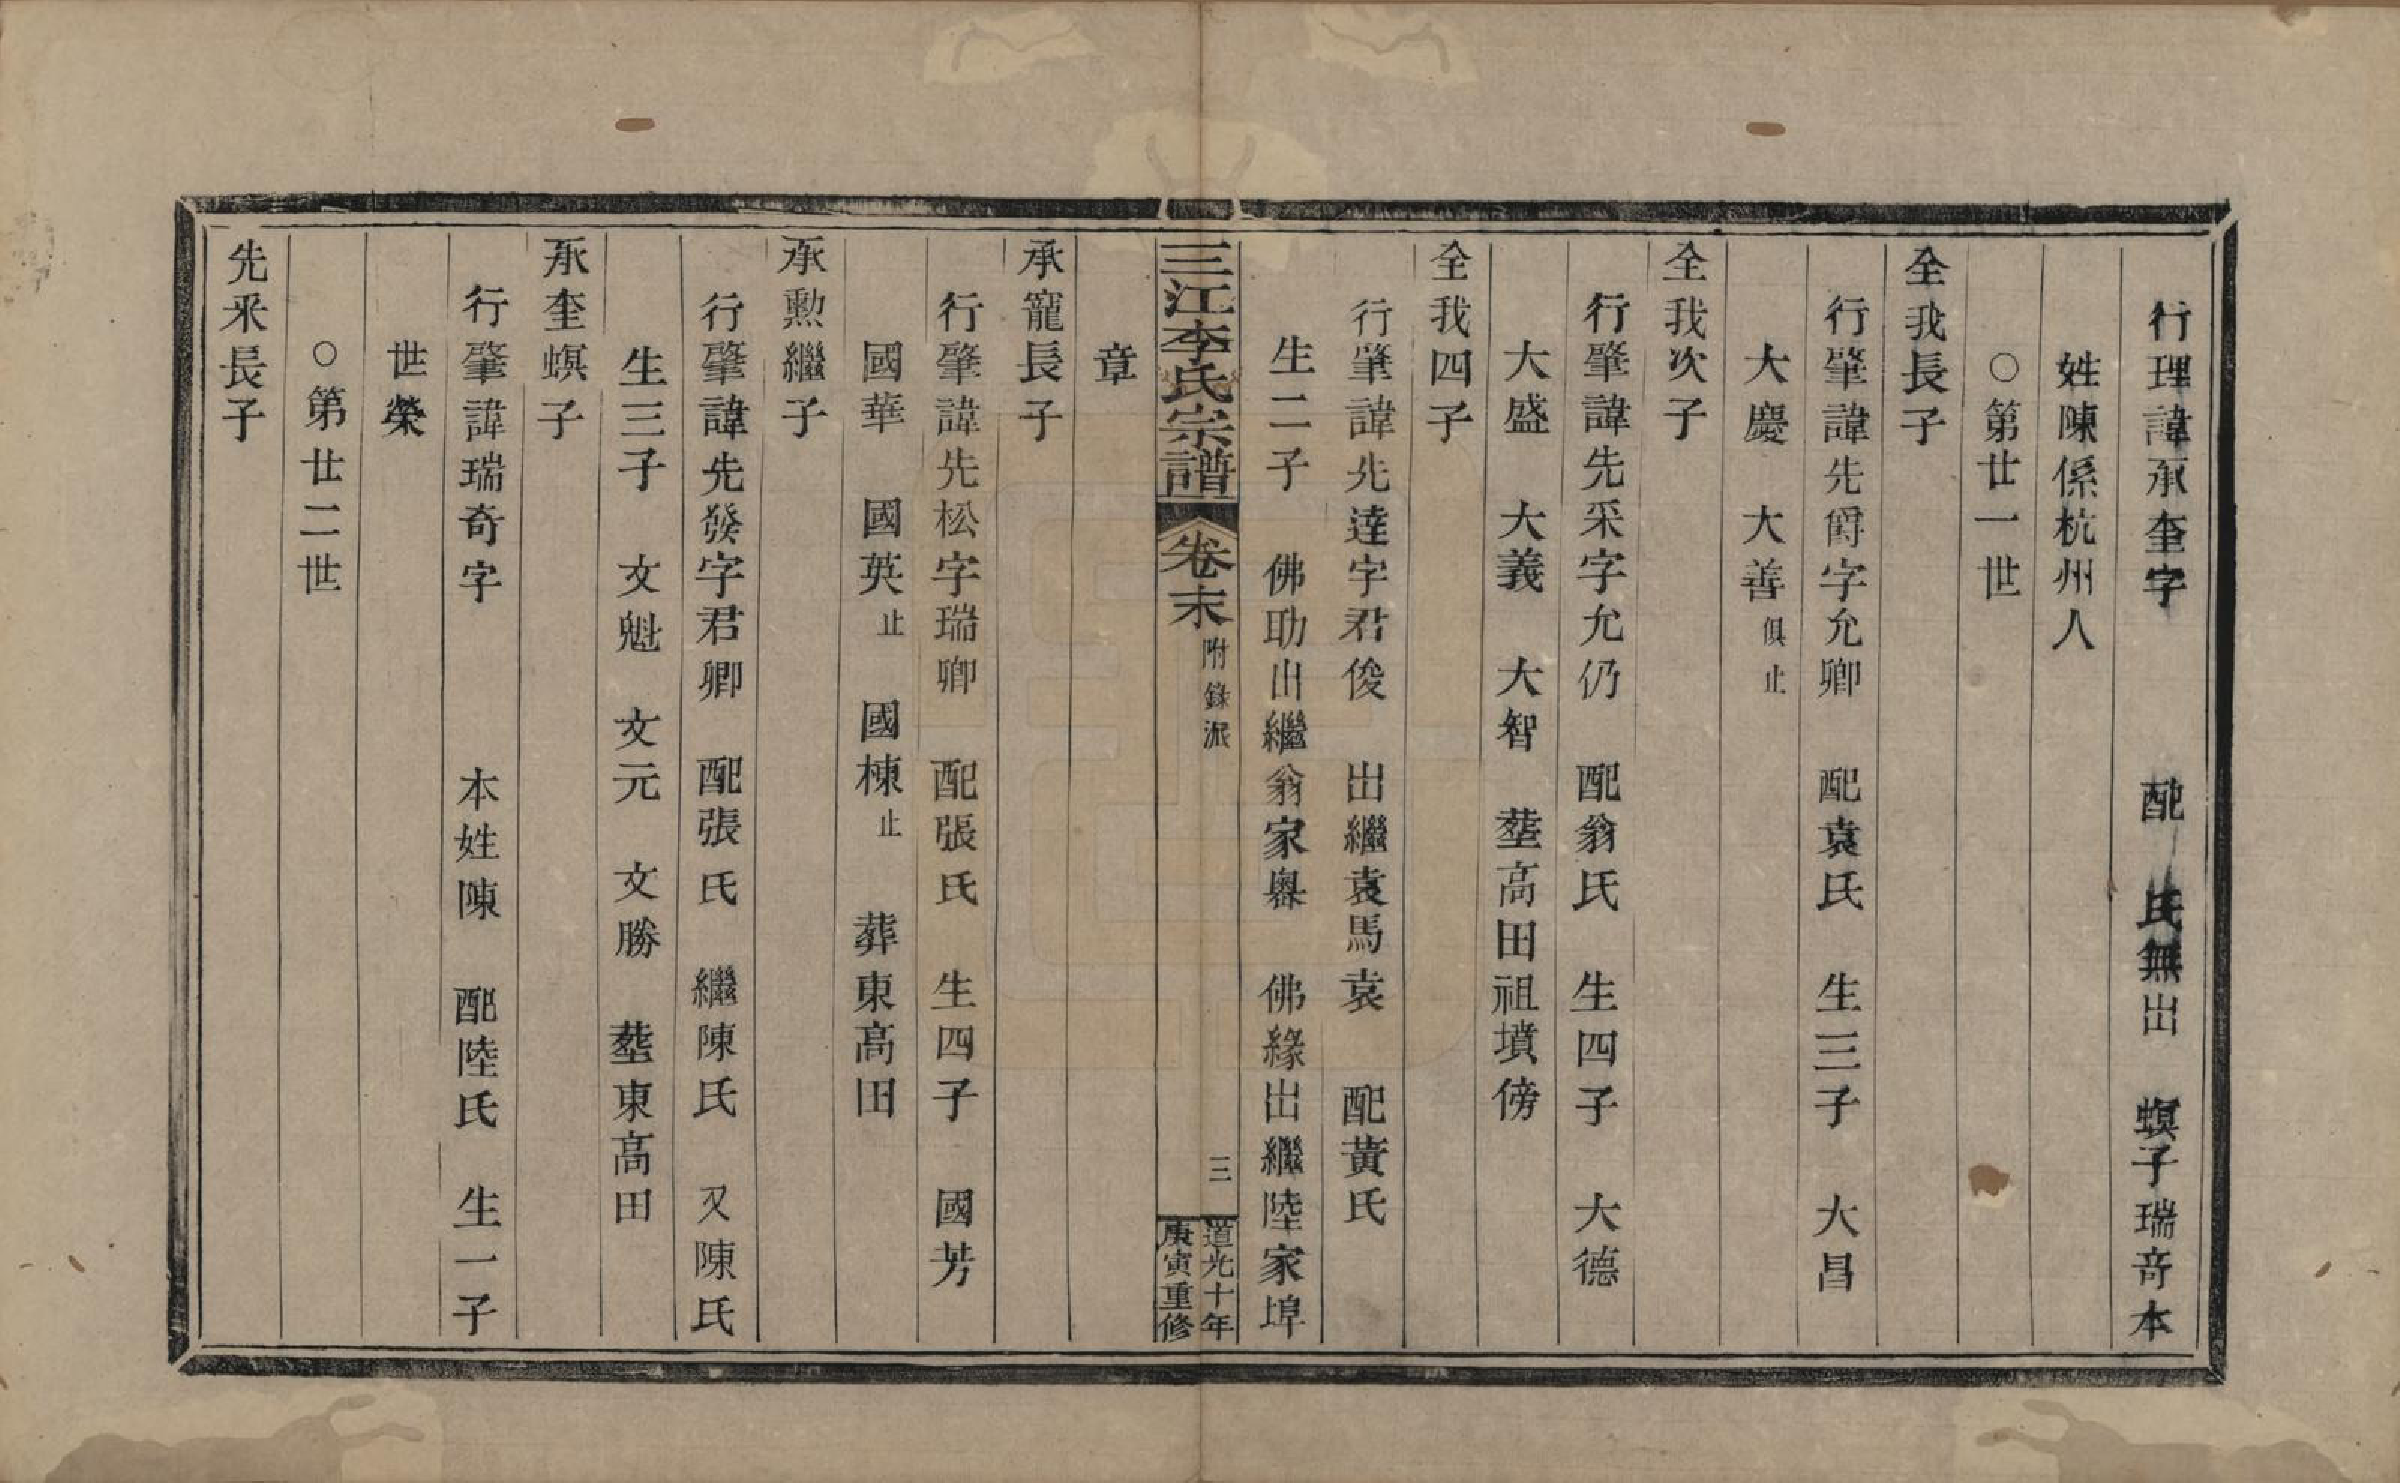 行理諱承奎字　配　氏無出　螟子瑞奇本
姓陳係杭州人
○第廿一世
全我長子
行肇諱先爵字允卿　配袁氏　生三子　大昌
大慶　大善俱止
全我次子
行肇諱先采字允仍　配翁氏　生四子　大德
大盛　大義　大智　塟高田祖墳傍
全我四子
行肇諱先達字君俊　出繼袁馬袁　配黃氏
生二子　佛助出繼翁家㠘　佛緣出繼陸家埠
三江李氏宗譜　卷末　附錄派　三　道光十年庚寅重修
章
承寵長子
行肇諱先松字瑞卿　配張氏　生四子　國芳
國華　國英止　國棟止　葬東高田
承勲繼子
行肇諱先發字君卿　配張氏　繼陳氏　又陳氏
生三子　文魁　文元　文勝　塟東高田
承奎螟子
行肇諱瑞奇字　本姓陳　配陸氏　生一子
世榮
○第廿二世
先釆長子